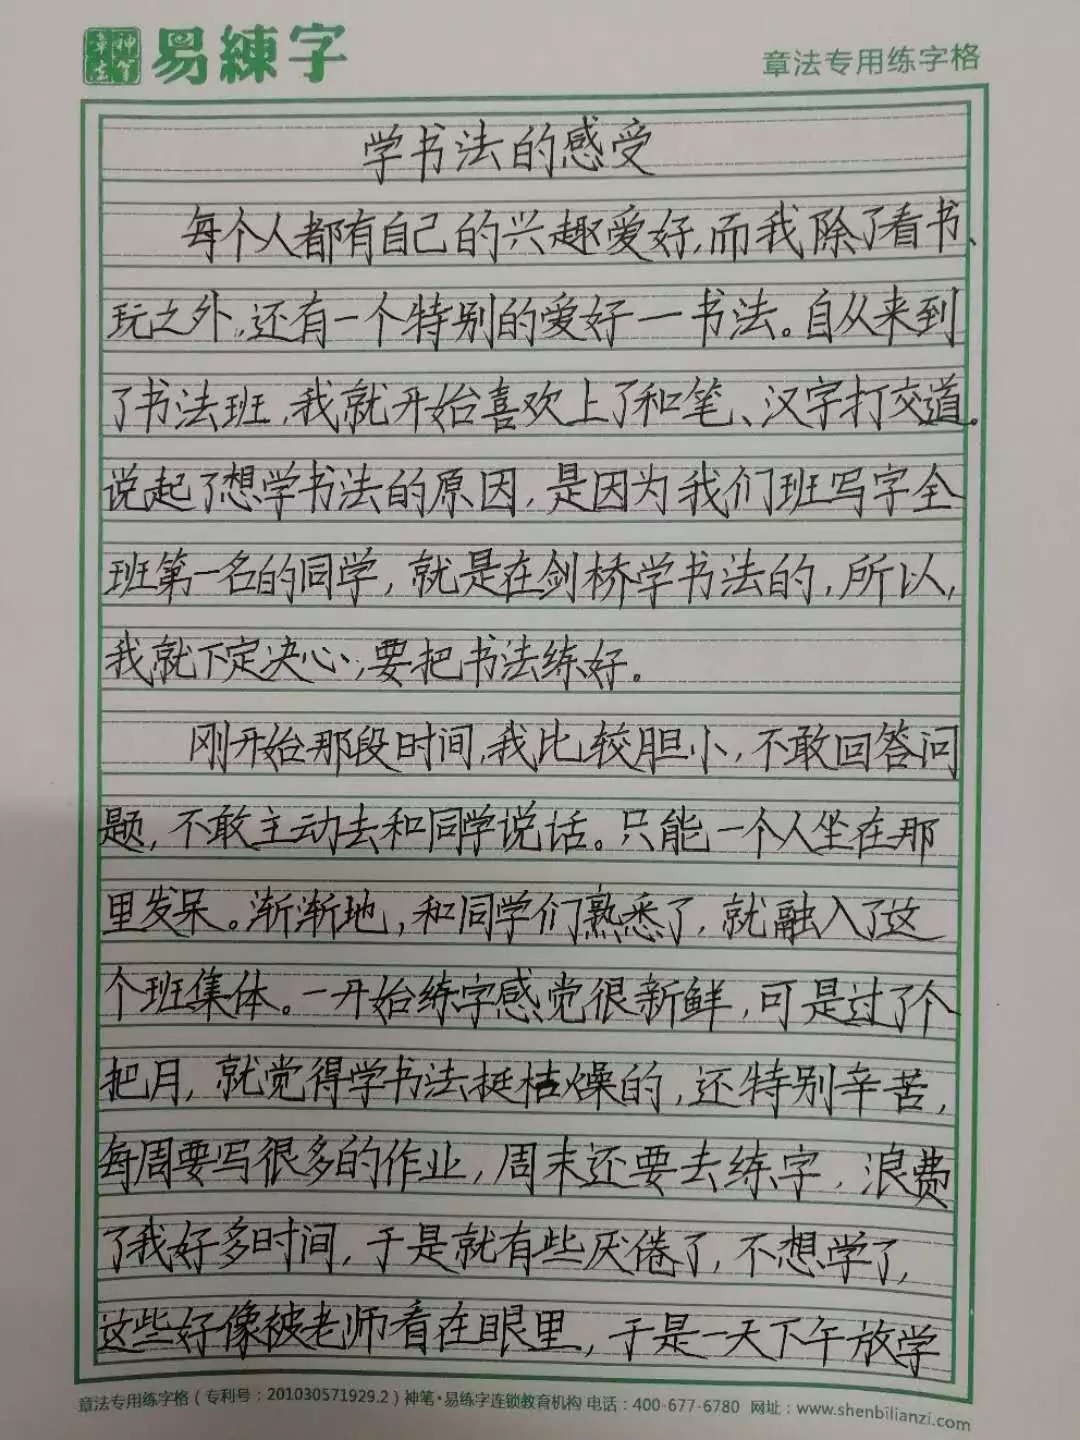 神笔章法 易練字
章法专用练字格
学书法的感受
每个人都有自己的兴趣爱好,而我除了看书、
玩之外,还有一个特别的爱好一书法。自从来到
了书法班,我就开始喜欢上了和笔、汉字打交道。
说起了想学书法的原因,是因为我们班写字全
班第一名的同学,就是在剑桥学书法的,所以,
我就下定决心,要把书法练好。
刚开始那段时间,我比较胆小,不敢回答问
题,不敢主动去和同学说话。只能一个人坐在那
里发呆。渐渐地,和同学们熟悉了,就融入了这
个班集体。一开始练字感觉很新鲜,可是过了个
把月,就觉得学书法挺枯燥的,还特别辛苦,
每周要写很多的作业,周末还要去练字,浪费
了我好多时间,于是就有些厌倦了,不想学了,
这些好像被老师看在眼里,于是一天下午放学
章法专用练字格(专利号:201030571929.2)神笔·易练字连锁教育机构 电话:400-677-6780 网址:www.shenbilianzi.com